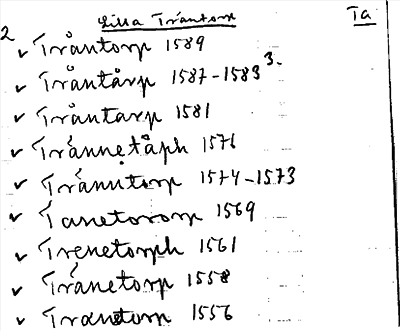 Lilla Trántorp Ta
2
✓ Tråntorp 1589
✓ Tråntårp 1587-1583 3.
✓ Tråntarp 1581
✓ Trånnetåph 1576
✓ Tránntorp 1574-1573
✓ Tanetororp 1569
✓ Trenetorph 1561
✓ Tránetorp 1558
✓ Tranetorp 1556